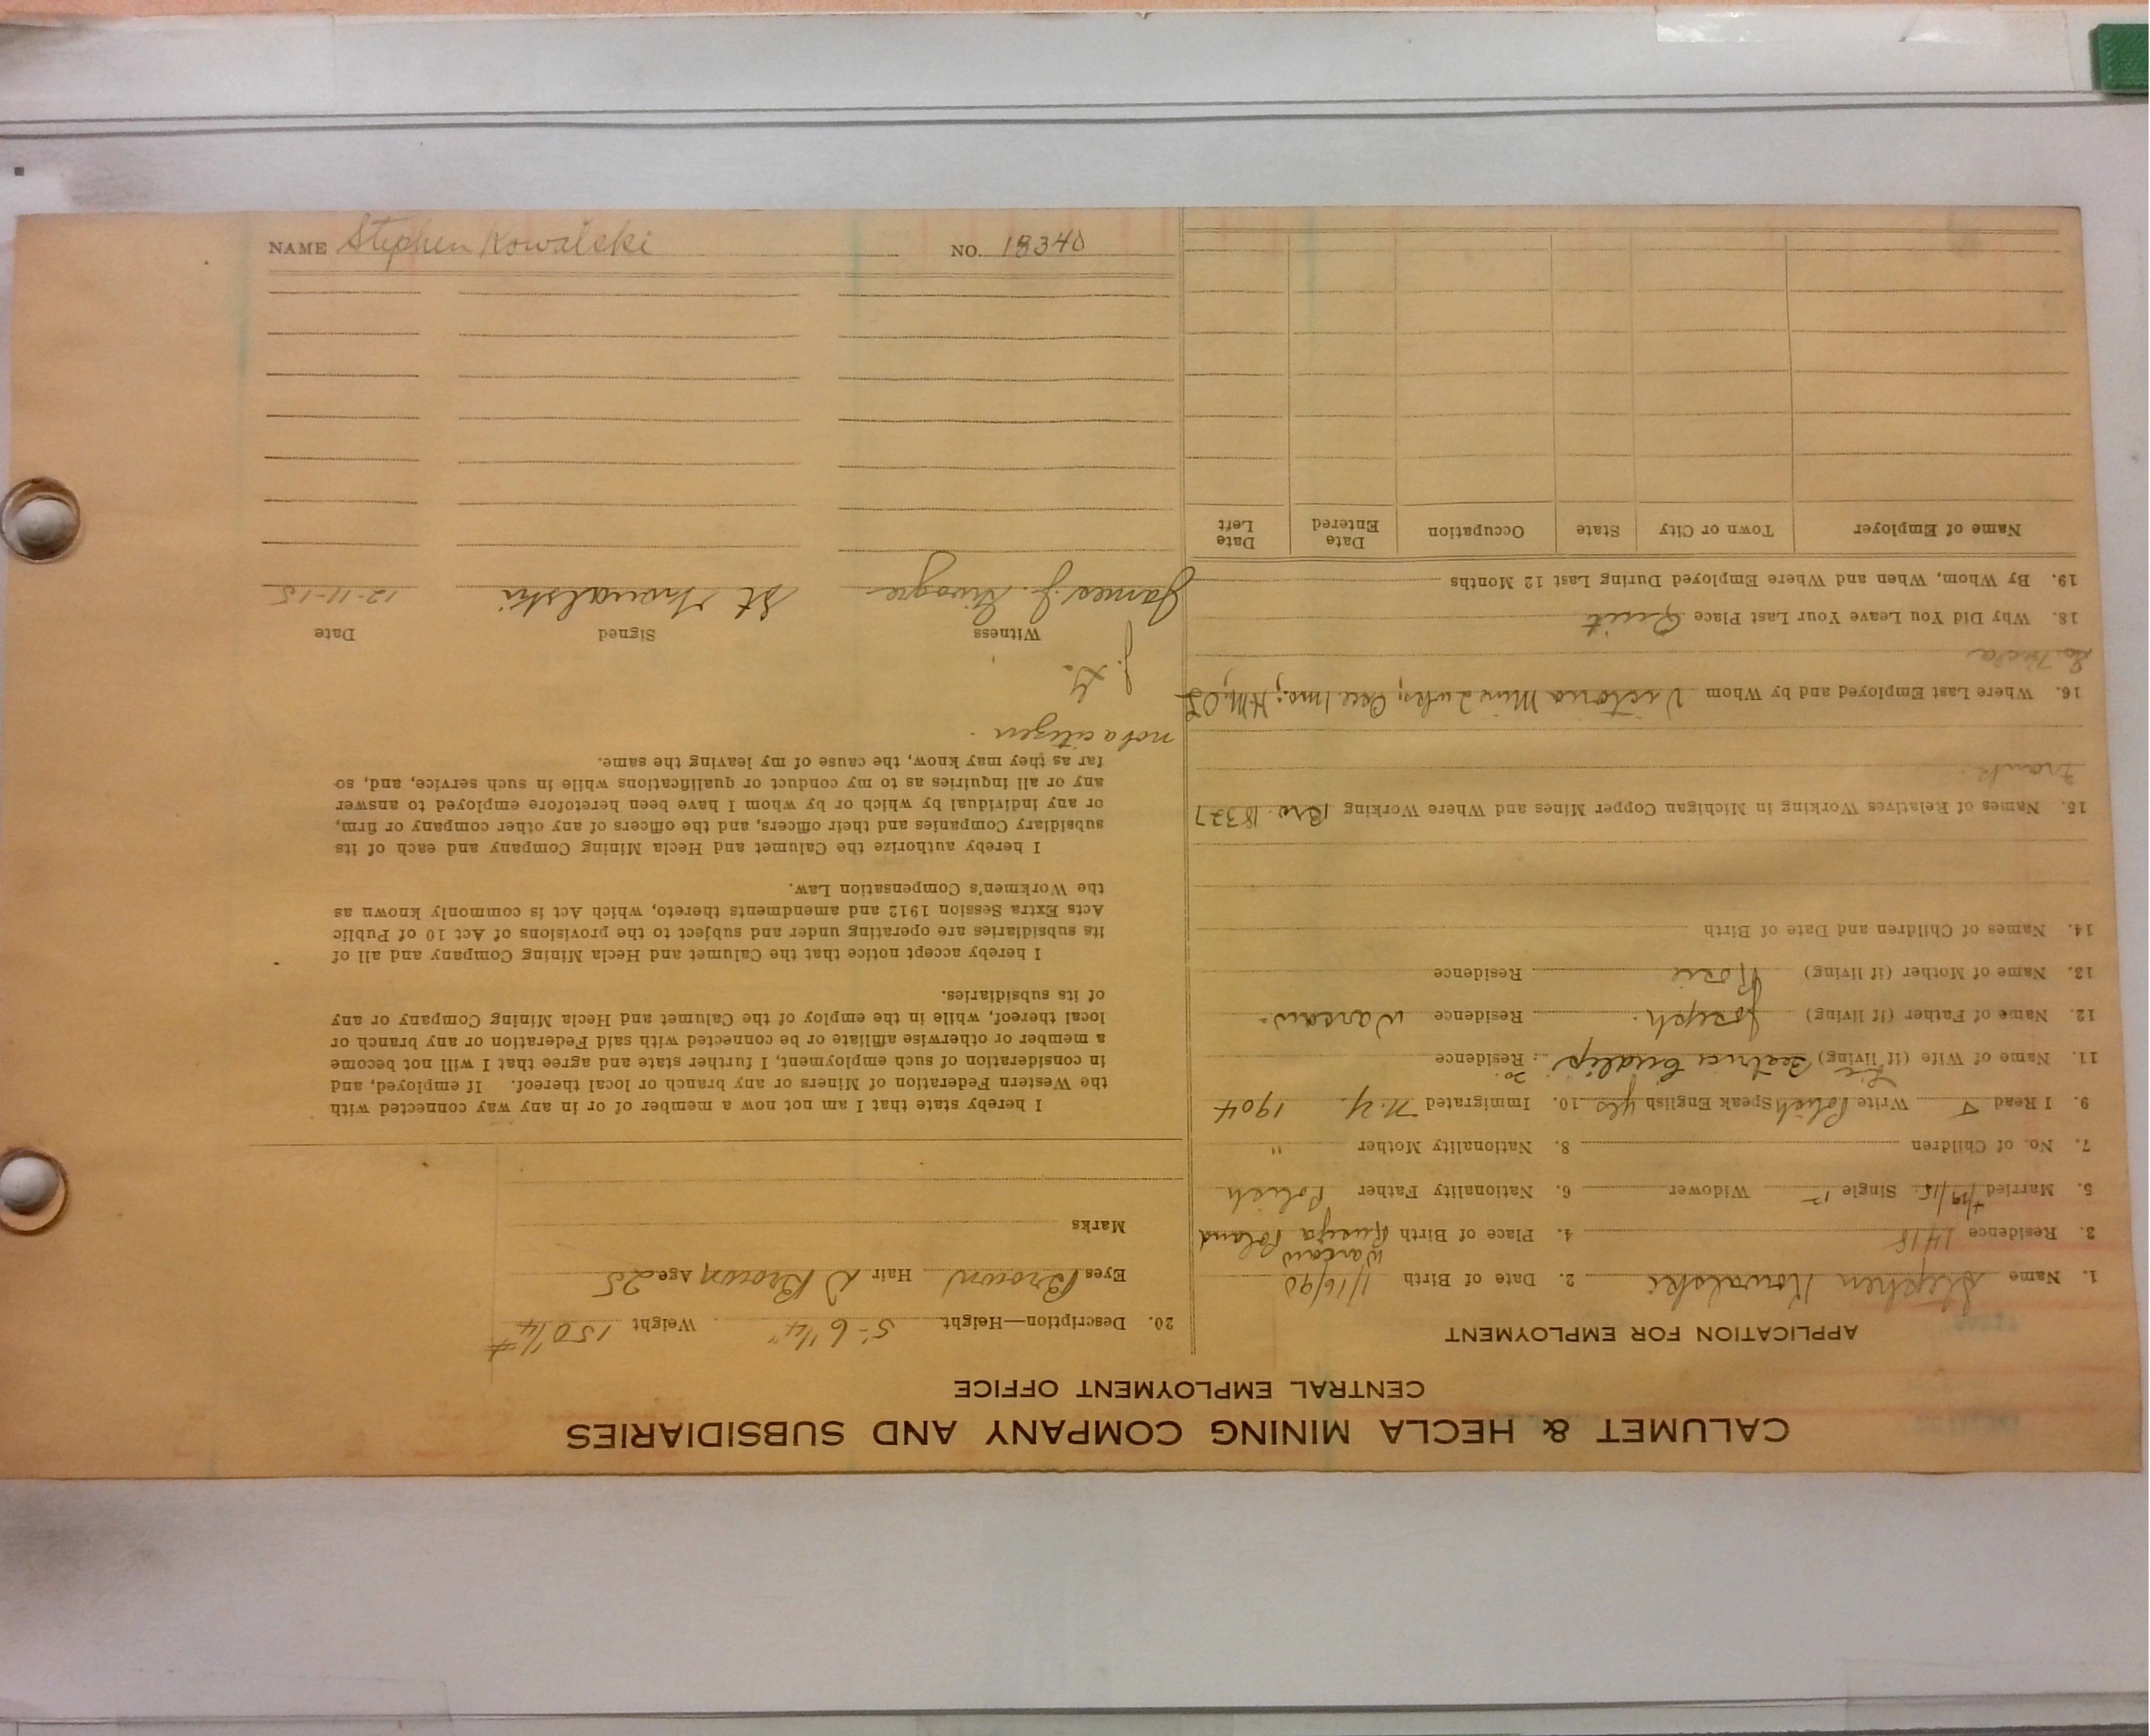 NAME Stephen Kowalski NO. 18340
CALUMET & HECLA MINING COMPANY AND SUBSIDIARIES
CENTRAL EMPLOYMENT OFFICE
APPLICATION FOR EMPLOYMENT
1. Name Stephen Kowalski 2. Date of Birth 1/16/90
Warsaw
3. Residence 1418 4. Place of Birth Russia Poland
5. Married Single Widower 6. Nationality Father Polish
7. No. of Children 8. Nationality Mother "
9. I Read Write Polish Speak English yes 10. Immigrated N.Y. 1904
11. Name of Wife (if living) Residence
12. Name of Father (if living) Joseph. Residence Warsaw.
13. Name of Mother (if living) Rosie Residence
14. Names of Children and Date of Birth
15. Names of Relatives Working in Michigan Copper Mines and Where Working Bro. 18327
Frank.
16. Where Last Employed and by Whom Victoria Mine
So. Hecla
18. Why Did You Leave Your Last Place Quit
19. By Whom, When and Where Employed During Last 12 Months
Name of Employer Town or City State Occupation Date Entered Date Left
20. Description—Height 5-6 1/4" Weight 150 1/4 #
Eyes Brown Hair D Brown Age 25
Marks
I hereby state that I am not now a member of or in any way connected with
the Western Federation of Miners or any branch or local thereof. If employed, and
in consideration of such employment, I further state and agree that I will not become
a member or otherwise affiliate or be connected with said Federation or any branch or
local thereof, while in the employ of the Calumet and Hecla Mining Company or any
of its subsidiaries.
I hereby accept notice that the Calumet and Hecla Mining Company and all of
its subsidiaries are operating under and subject to the provisions of Act 10 of Public
Acts Extra Session 1912 and amendments thereto, which Act is commonly known as
the Workmen's Compensation Law.
I hereby authorize the Calumet and Hecla Mining Company and each of its
subsidiary Companies and their officers, and the officers of any other company or firm,
or any individual by which or by whom I have been heretofore employed to answer
any or all inquiries as to my conduct or qualifications while in such service, and, so
far as they may know, the cause of my leaving the same.
not a citizen.
Witness Signed Date
James J. St. Kowalski 12-11-15